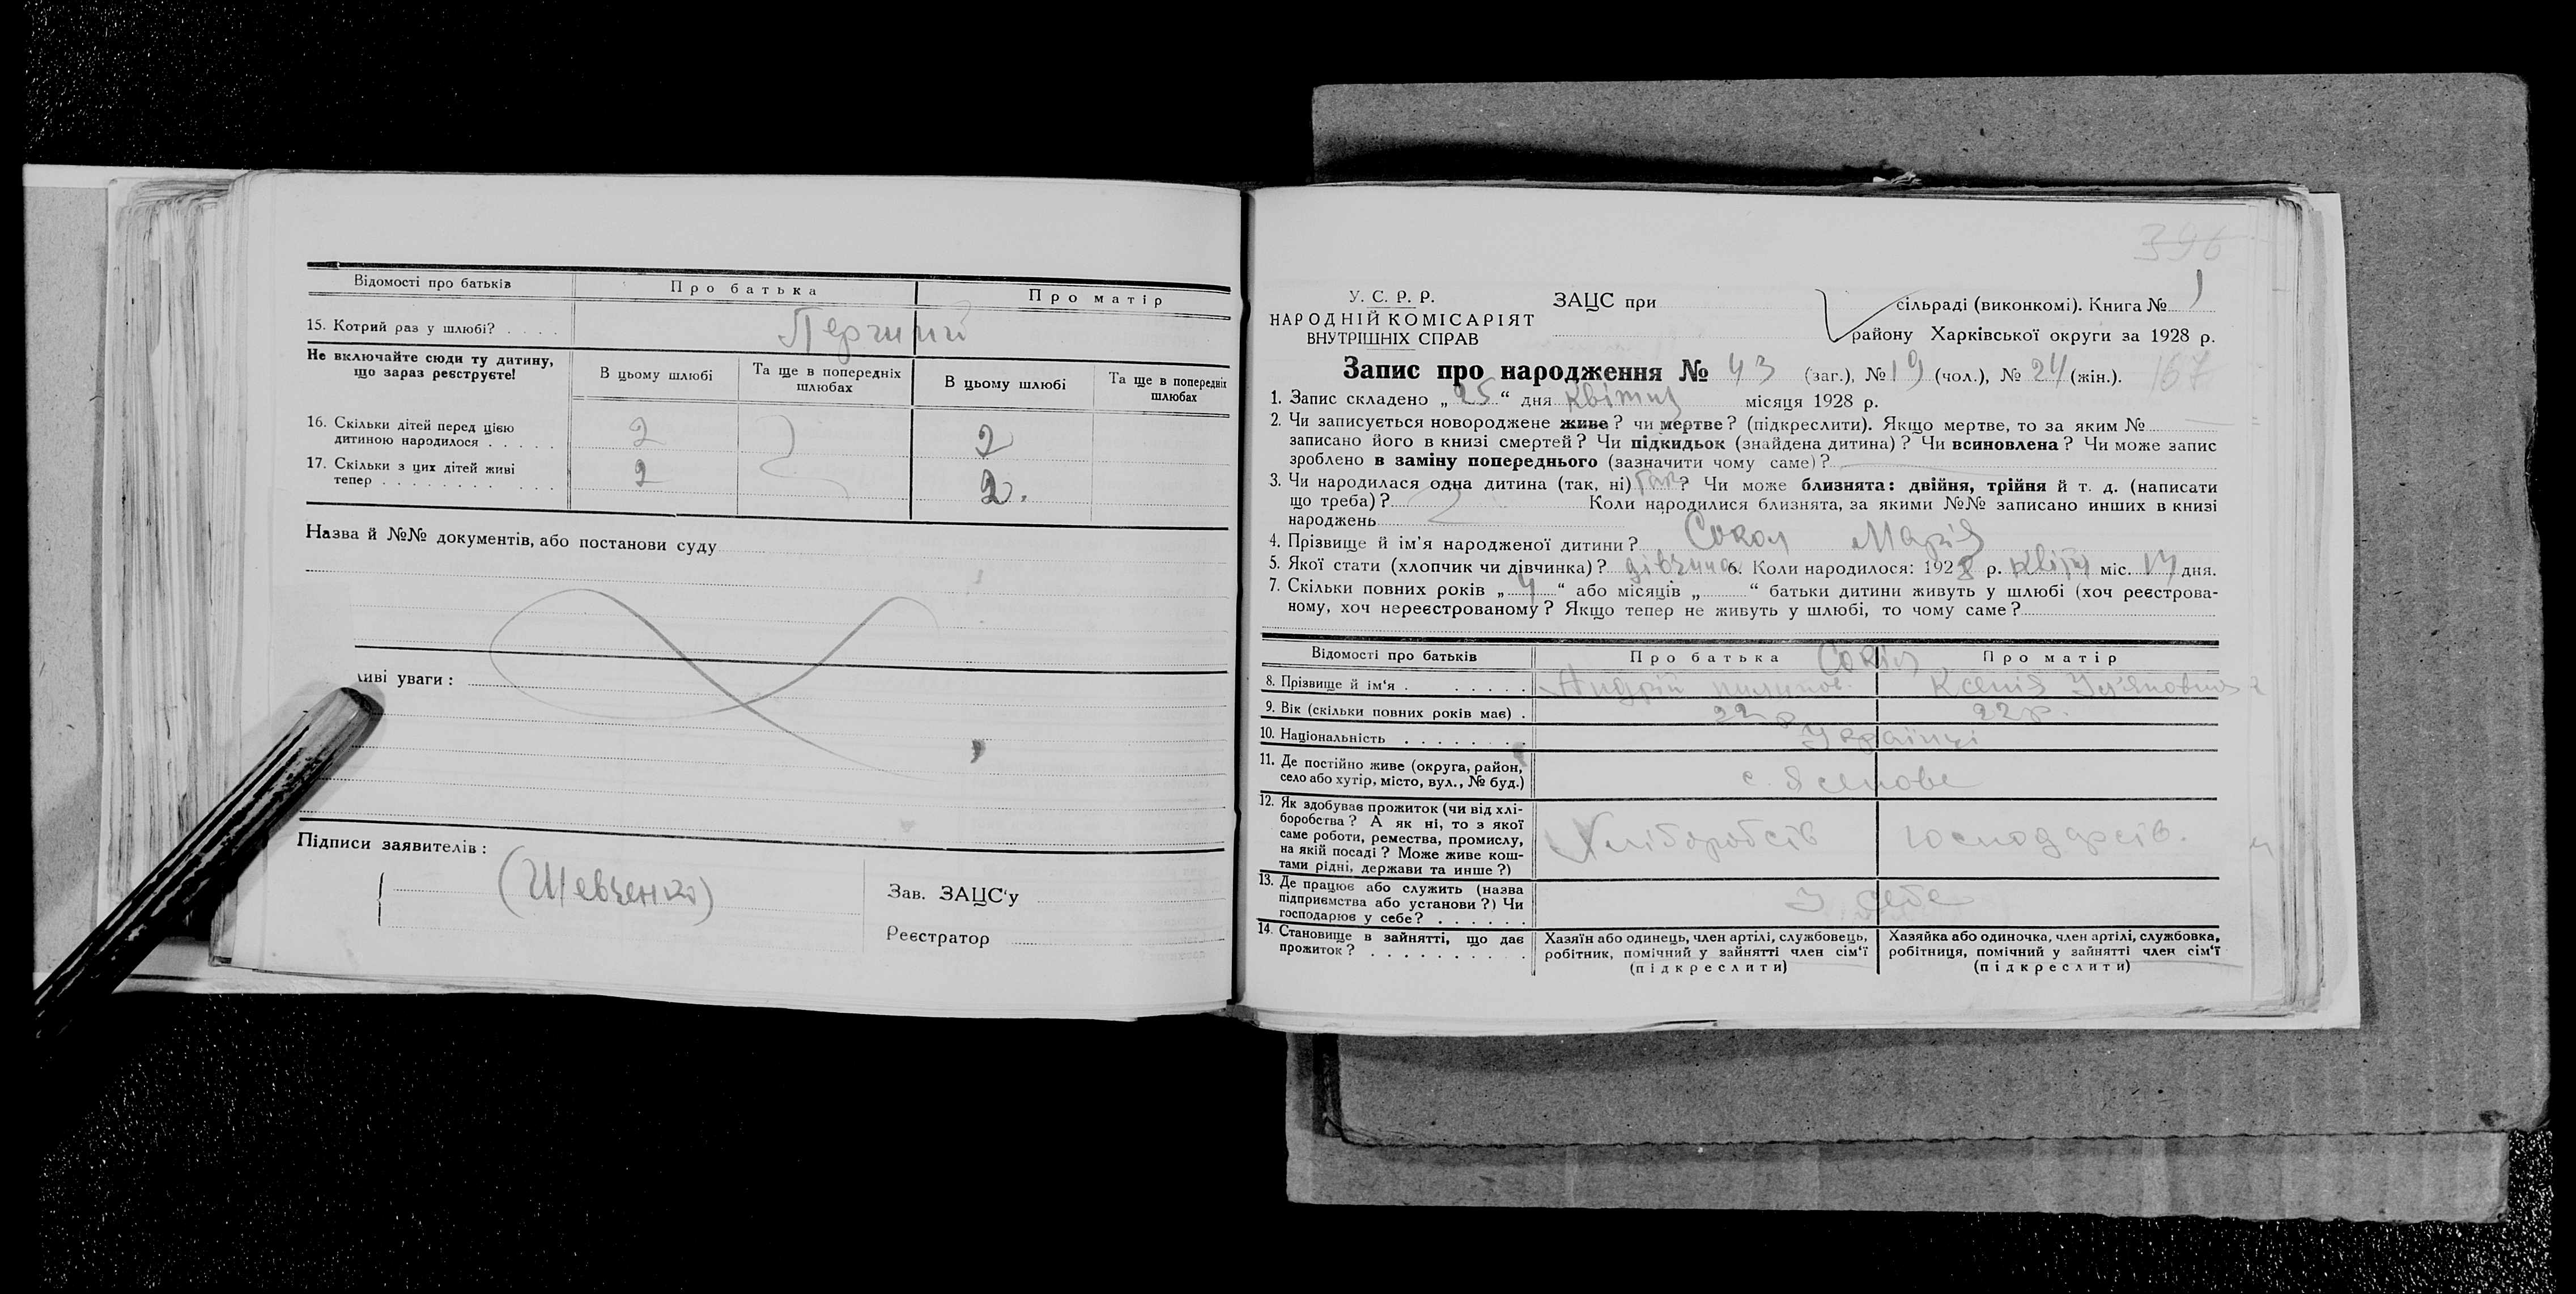 Відомості про батьків Про батька Про матір
15. Котрий раз у шлюбі? . . . . Перший
Не включайте сюди ту дитину, що зараз реєструєте! В цьому шлюбі Та ще в попередніх шлюбах В цьому шлюбі Та ще в попередніх шлюбах
16. Скільки дітей перед цією дитиною народилося . . . . . 2 2
17. Скільки з цих дітей живі тепер . . . . . . . . . . . 2 2.
Назва й №№ документів, або постанови суду
иві уваги :
Підписи заявителів :
(Шевченко)
Зав. ЗАЦС'у
Реєстратор
396
У. С. Р. Р.
НАРОДНІЙ КОМІСАРІЯТ
ВНУТРІШНІХ СПРАВ
ЗАЦС при сільраді (виконкомі). Книга № 1
району Харківської округи за 1928 р.
Запис про народження № 43 (заг.), № 19 (чол.), № 24 (жін.). 167
1. Запис складено „ 25 “ дня квітня місяця 1928 р.
2. Чи записується новороджене живе ? чи мертве ? (підкреслити). Якщо мертве, то за яким №
записано його в книзі смертей ? Чи підкидьок (знайдена дитина) ? Чи всиновлена ? Чи може запис
зроблено в заміну попереднього (зазначити чому саме) ?
3. Чи народилася одна дитина (так, ні) так ? Чи може близнята: двійня, трійня й т. д. (написати
що треба) ? Коли народилися близнята, за якими №№ записано инших в книзі
народжень
4. Прізвище й ім'я народженої дитини ? Сокол Марія
5. Якої стати (хлопчик чи дівчинка) ? дівчина 6. Коли народилося: 1928 р. квітн міс. 17 дня.
7. Скільки повних років „ 4 “ або місяців „ “ батьки дитини живуть у шлюбі (хоч реєстрова-
ному, хоч нереєстрованому ? Якщо тепер не живуть у шлюбі, то чому саме ?
Відомості про батьків Про батька Про матір
Сокіл
8. Прізвище й ім'я . . . . . . Андрій пилипов Ксенія
9. Вік (скільки повних років має) . 22 р 22 р.
10. Національність . . . . . . . Українці
11. Де постійно живе (округа, район, село або хутір, місто, вул., № буд.) с. Ясенове
12. Як здобуває прожиток (чи від хлі-
боробства ? А як ні, то з якої
саме роботи, ремества, промислу,
на якій посаді ? Може живе кош-
тами рідні, держави та инше ?) Хліборобств господарств.
13. Де працює або служить (назва
підприємства або установи ?) Чи
господарює у себе ? . . . . . . У себе
14. Становище в зайнятті, що дає
прожиток ? . . . . . . . . . .
Хазяїн або одинець, член артілі, службовець,
робітник, помічний у зайнятті член сім'ї
(підкреслити)
Хазяйка або одиночка, член артілі, службовка,
робітниця, помічний у зайнятті член сім'ї
(підкреслити)